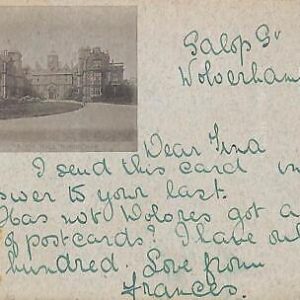 Salop St
Wolverham
Dear Tina
I send this card in
swer to your last.
Has not Dolores got a
of postcards? I have only
hundred. Love from
Frances.